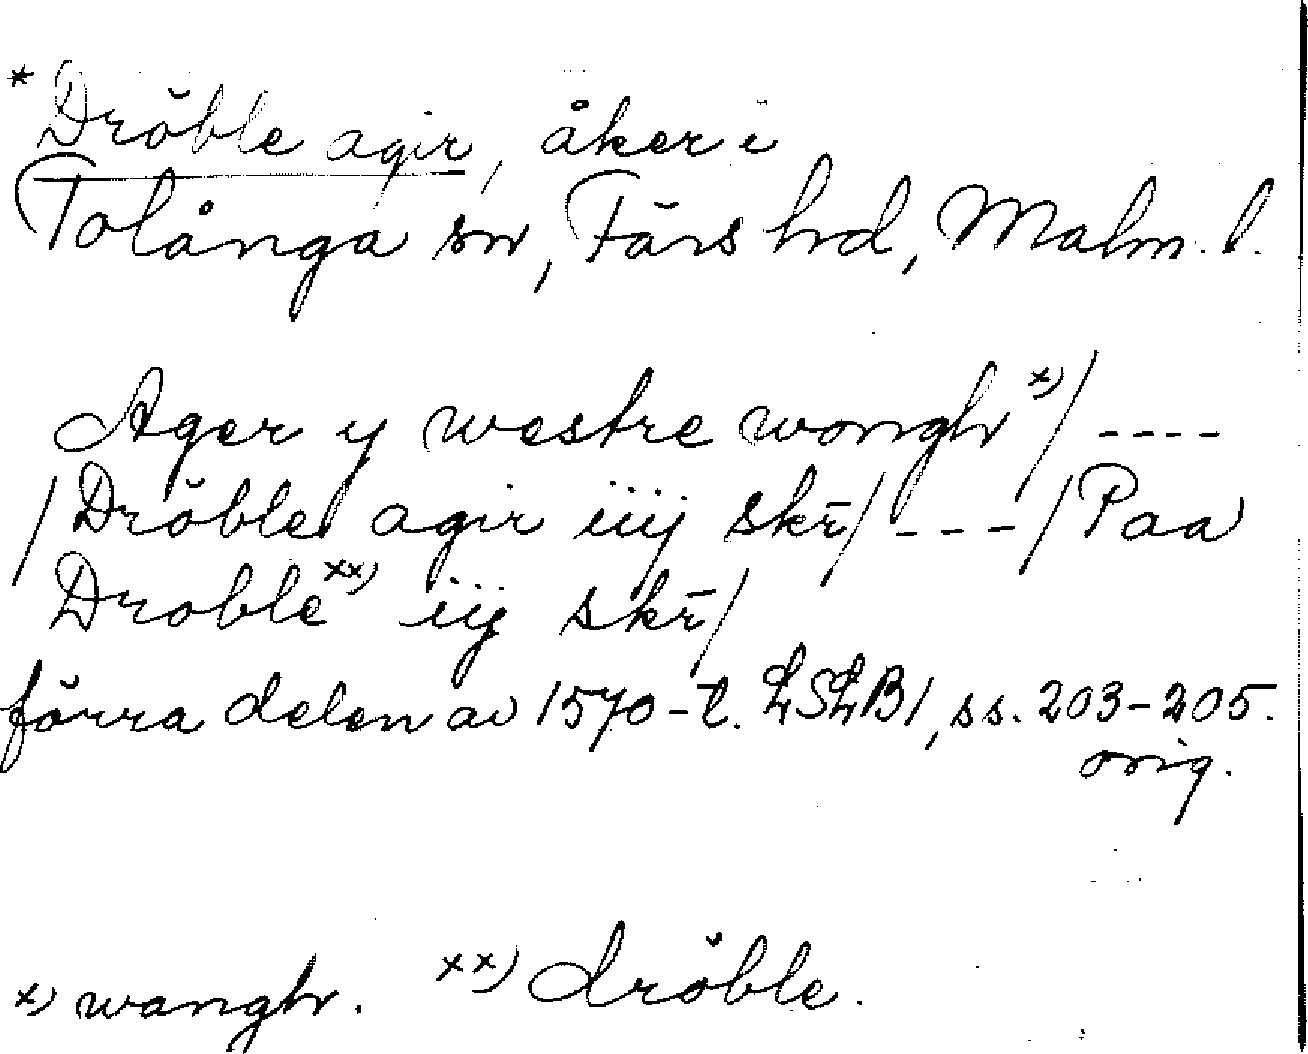 * Dröble agir, åker i
Tolånga sn, Färs hd, Malm. l.
Ager y westre wongh x) / ----
/ Dröble agir iiij skr̄ / --- / Paa
Droble xx) iij skr̄ /
förra delen av 1570-t. LSLB1, ss. 203-205.
orig.
x) wangh. xx) dröble.